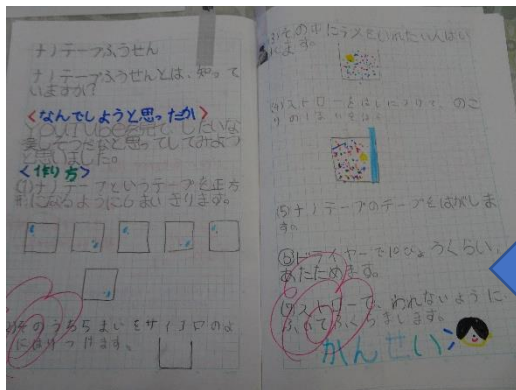 ナノテープふうせん
ナノテープふうせんとは、知って
いますか?
<なんでしようと思ったか>
YouTubeを見て、したいな
楽しそうだなと思ってしてみようと
と思いました。
<作り方>
(1)ナノテープというテープを正方
形になるように6まいきります。
(2)そのうち5まいをサイコロのよ
うにはりつけます。
(3)その中にラメをいれたいんはい
れます。
(4)ストローをはしにつけて、のこ
りの1まいをはる
(5)ナノテープのテープをはがしま
す。
(6)ドライヤーで10びょうくらい、
あたためます。
(7)ストローで、われないように
ふいてふくらまします。
かんせい